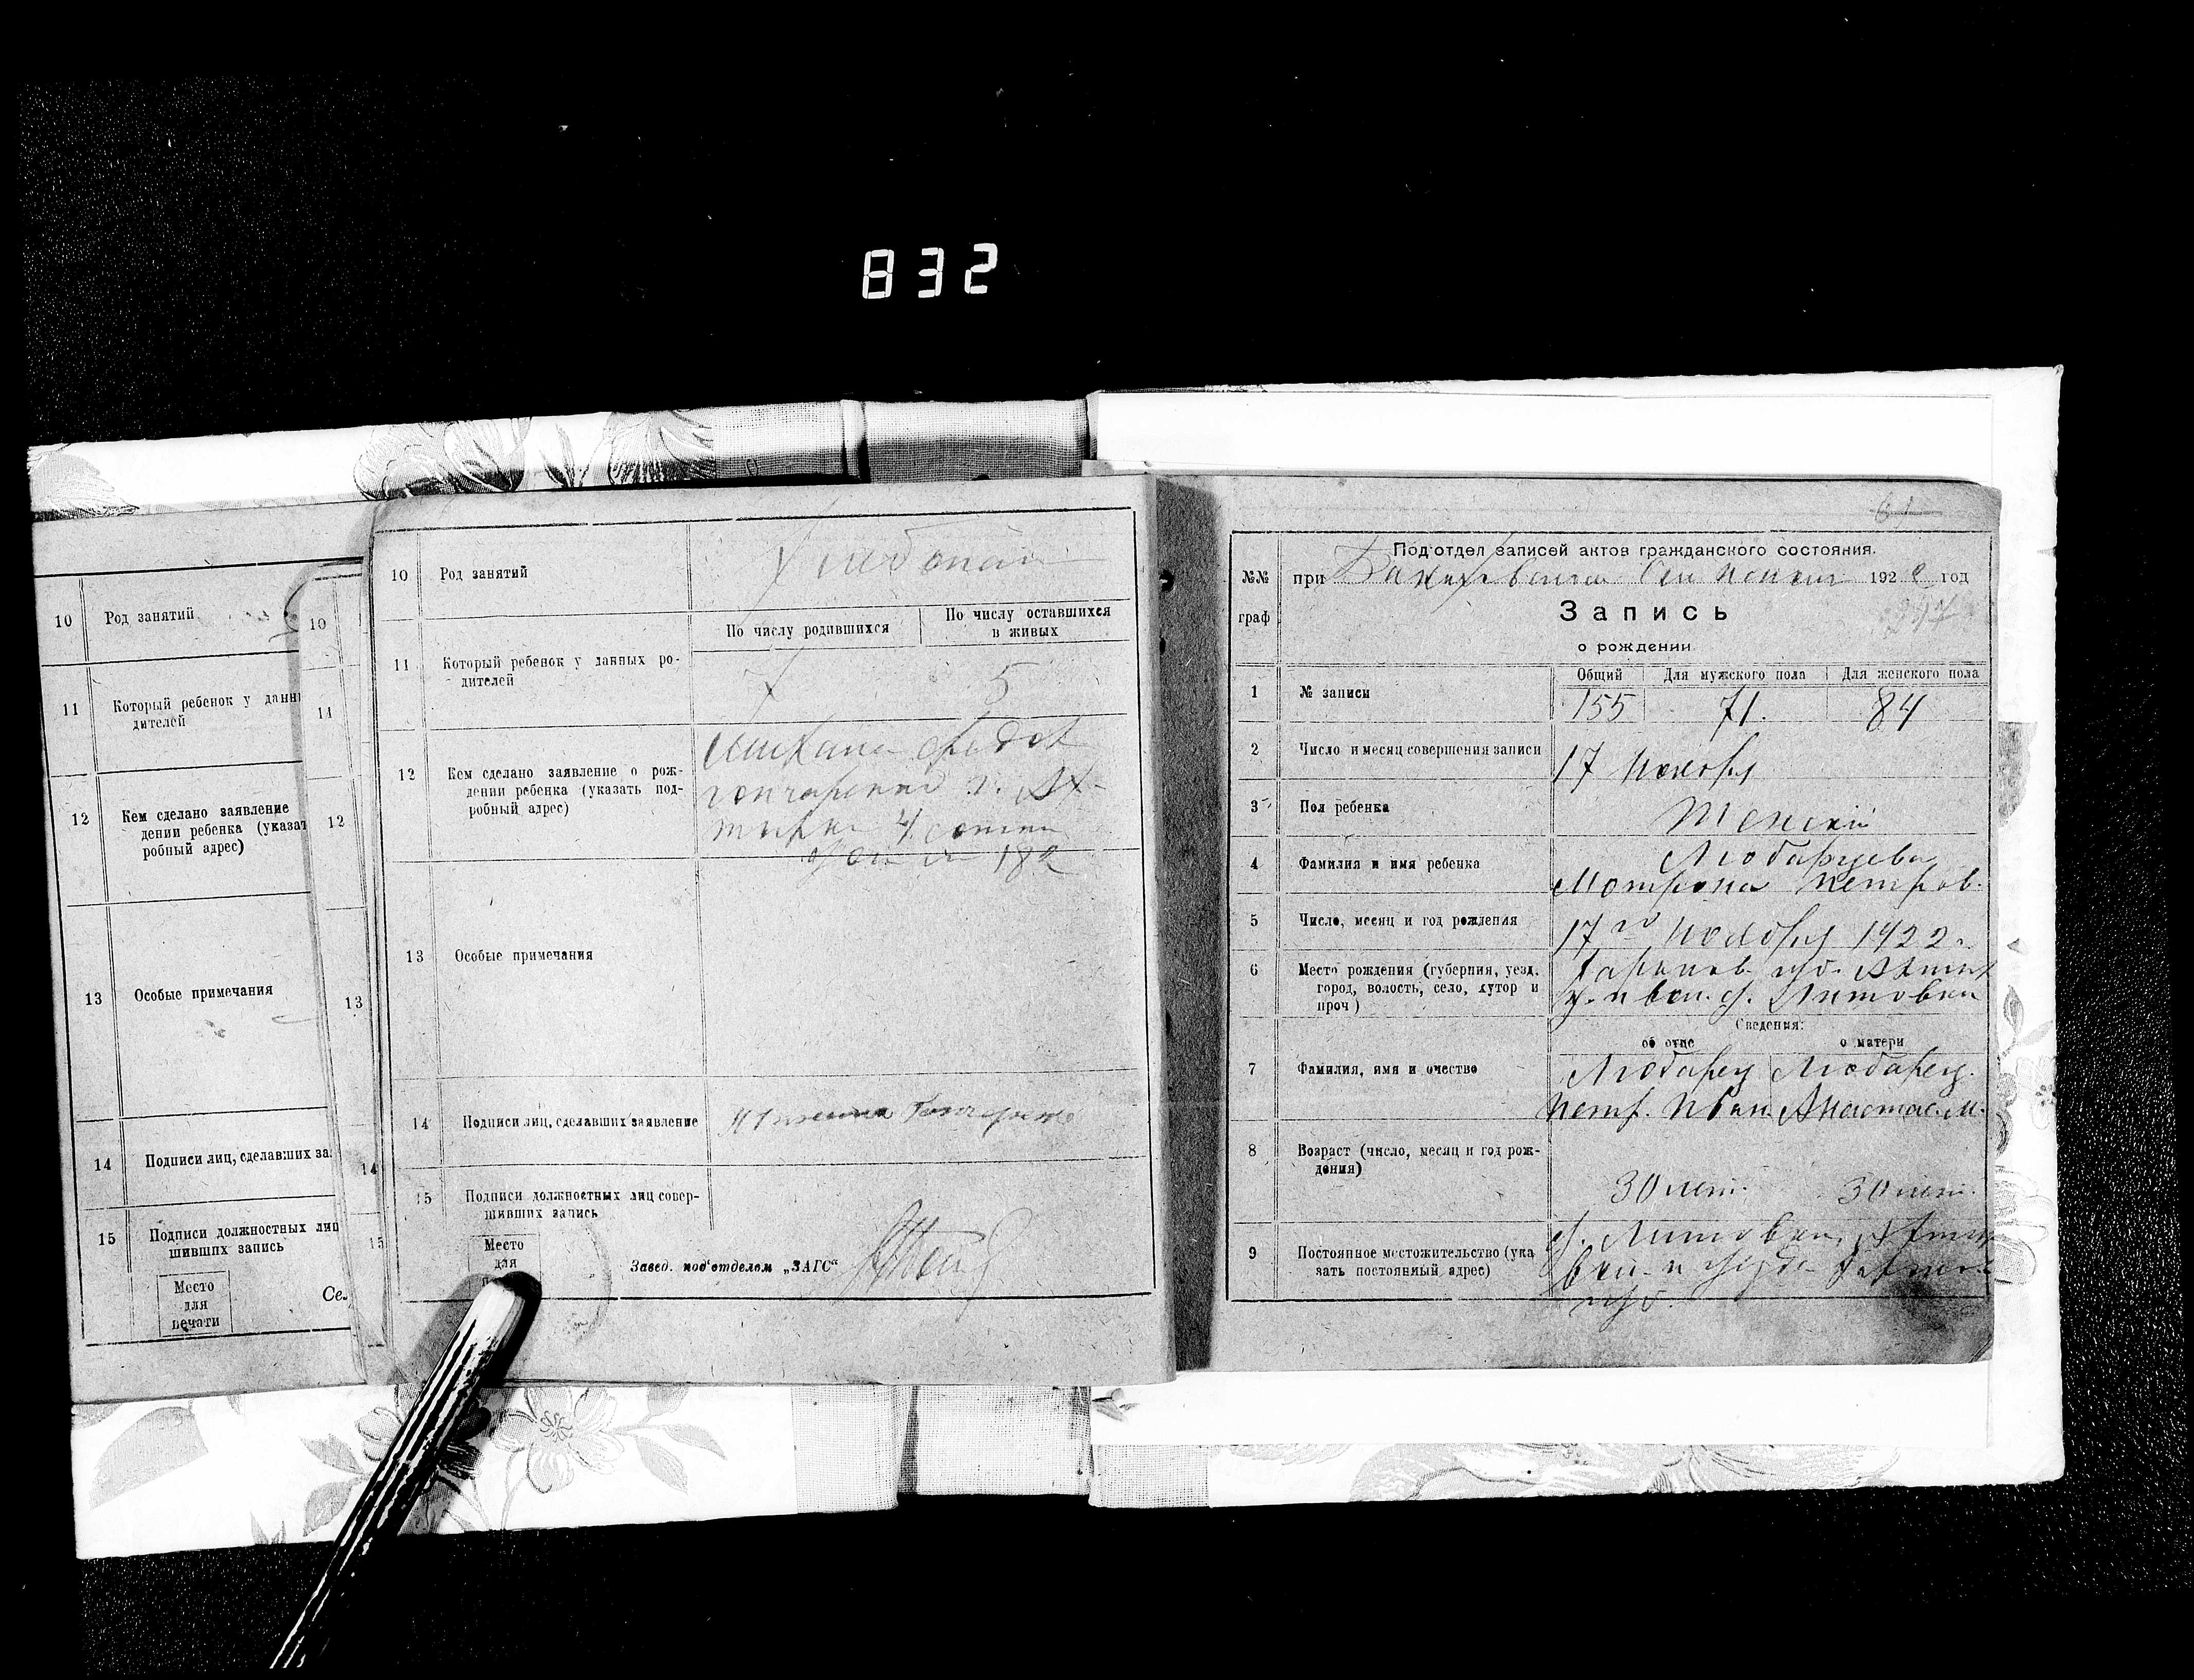 832
10 Род занятий
11 Который ребенок у данн
дителей
12 Кем сделано заявление
дении ребенка (указат
робный адрес)
13 Особые примечания
14 Подписи лиц, сделавших за
15 Подписи должностных лиц
шивших запись
Место
для
печати
Се
10
11
12
13
14
15
10 Род занятий
По числу родившихся
По числу оставшихся
в живых
11 Который ребенок у данных ро-
дителей
7 5
12 Кем сделано заявление о рож-
дении ребенка (указать под-
робный адрес)
гончаренко г. Ах-
тырка 4 сотни
182
13 Особые примечания
14 Подписи лиц, сделавших заявление
15 Подписи должностных лиц совер-
шивших запись
Место
для
Завед. под'отделом „ЗАГС"
61
№№
граф
Под'отдел записей актов гражданского состояния.
при 1922 год
Запись
о рождении
1 № записи
Общий Для мужского пола Для женского пола
155 71. 84
2 Число и месяц совершения записи
17 Ноября
3 Пол ребенка
Женский
4 Фамилия и имя ребенка
Любарцева
Мотрона Петров.
5 Число, месяц и год рождения
17го Ноября 1922 г.
6 Место рождения (губерния, уезд,
город, волость, село, хутор и
проч)
Харьков. губ. Ахтыр
у. и вол. с. Литовки
Сведения:
об отце о матери
7 Фамилия, имя и очество
Любарец Любарец.
Петр. Иван. Анастас. М.
8 Возраст (число, месяц и год рож-
дения)
30 лет. 30 лет.
9 Постоянное местожительство (ука
зать постоянный адрес)
с. Литовки, Ахтыр
вол. и уезда Харьков
губ.